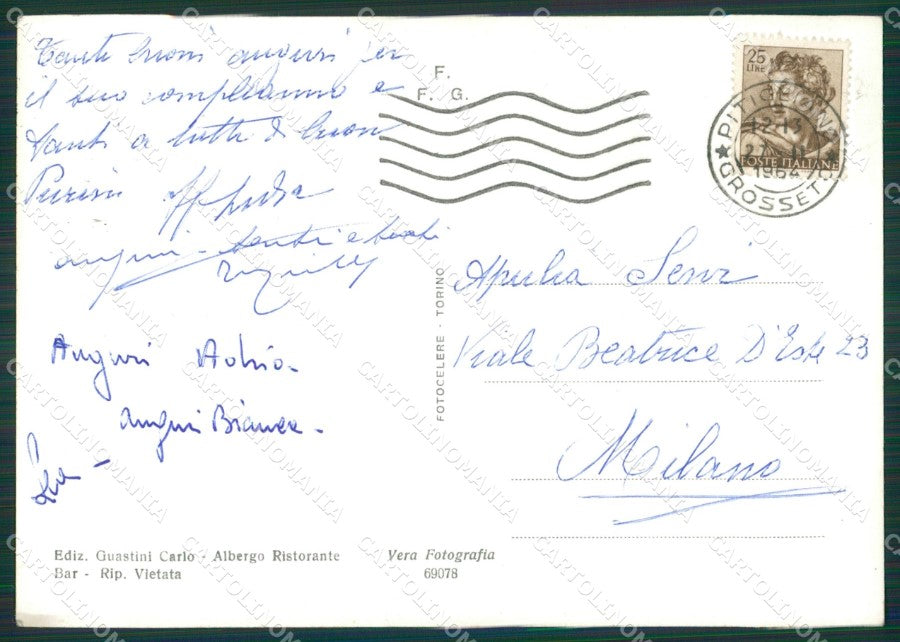 Tanti buoni auguri per
il suo compleanno e
tanti a tutti di buon
auguri tanti e tanti
Auguri
auguri Bianca -
F.
F. G.
25
LIRE
POSTE ITALIANE
PITIGLIANO
12-13
1964
GROSSETO
Apulia Servi
Viale Beatrice D'Este 23
Milano
FOTOCELERE - TORINO
Ediz. Guastini Carlo - Albergo Ristorante
Bar - Rip. Vietata
Vera Fotografia
69078
CARTOLINOMANIA